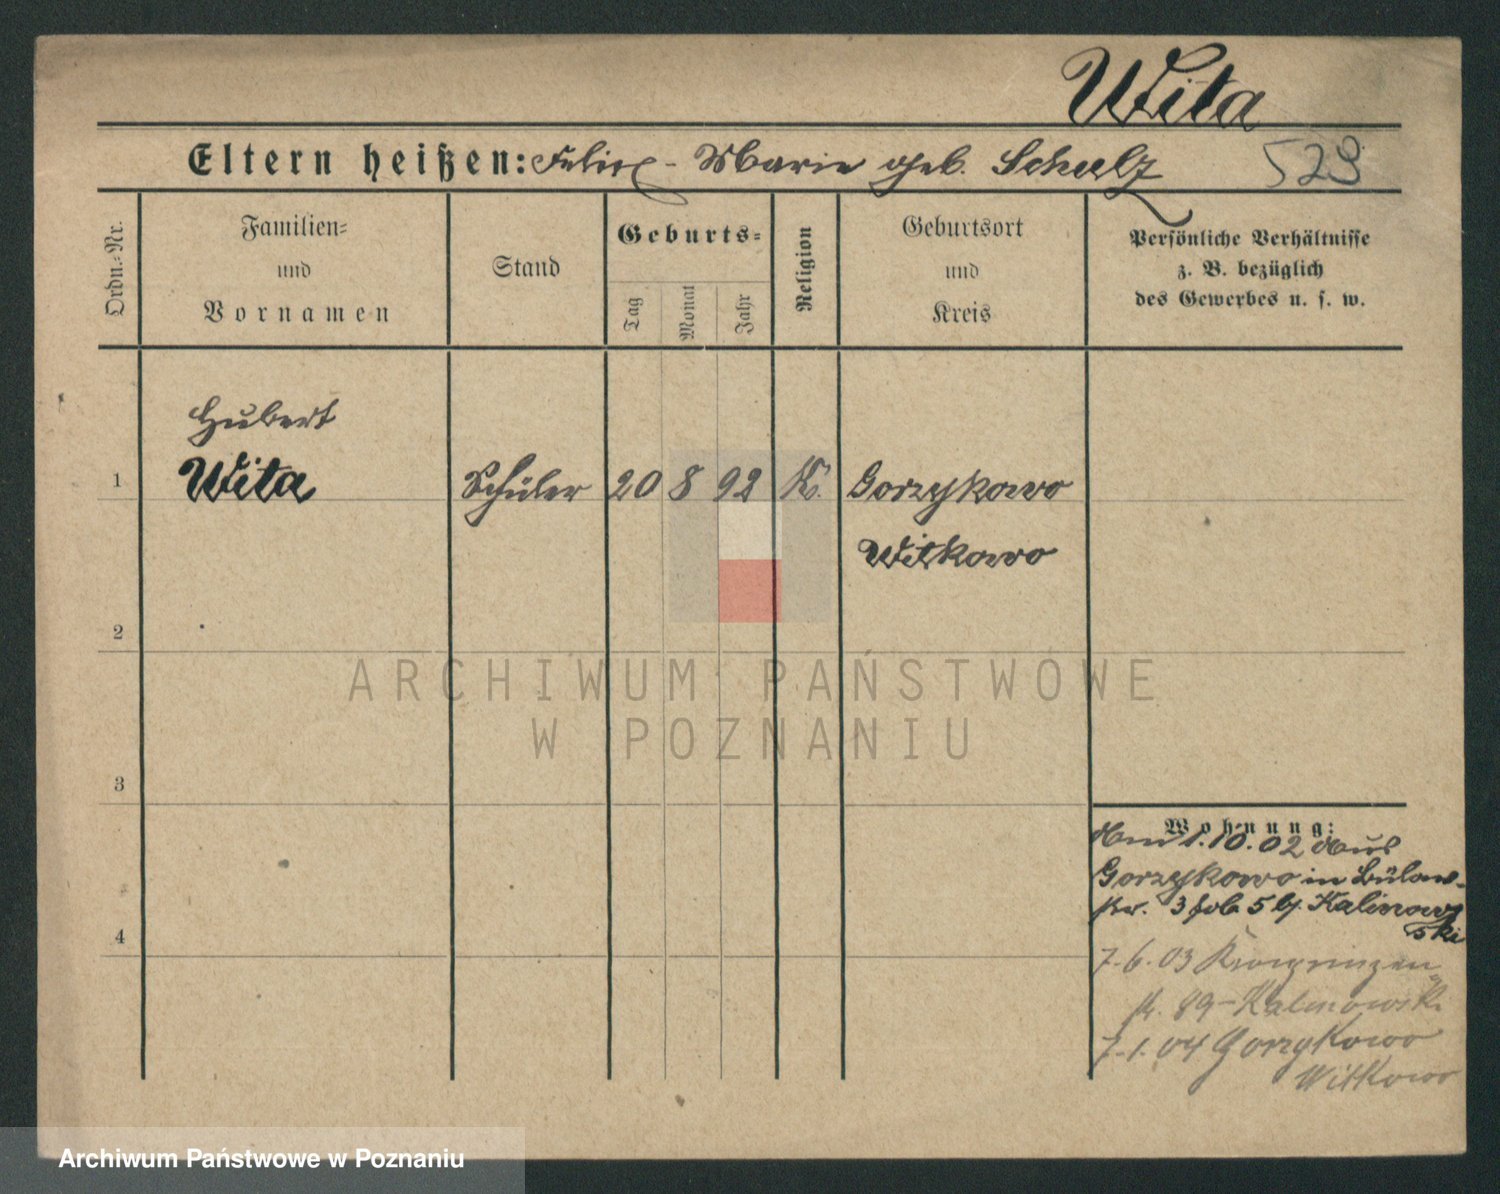 Wita
Eltern heißen: Felix - Marie geb. Schulz 529
Ordn.-Nr.
Familien-
und
Vornamen
Stand
Geburts-
Tag
Monat
Jahr
Religion
Geburtsort
und
Kreis
Persönliche Verhältnisse
z. B. bezüglich
des Gewerbes u. s. w.
Hubert
1 Wita Schüler 20 8 92 K. Gorzykowo
Witkowo
2
ARCHIWUM PAŃSTWOWE
W POZNANIU
3
Wohnung:
1.10.02 aus
Gorzykowo in Bülow-
str. 3 b/ Kalinow
ski
4
7.6.03 Kronprinzen
str. 89 - Kalinowski
7.1.04 Gorzykowo
Witkowo
Archiwum Państwowe w Poznaniu